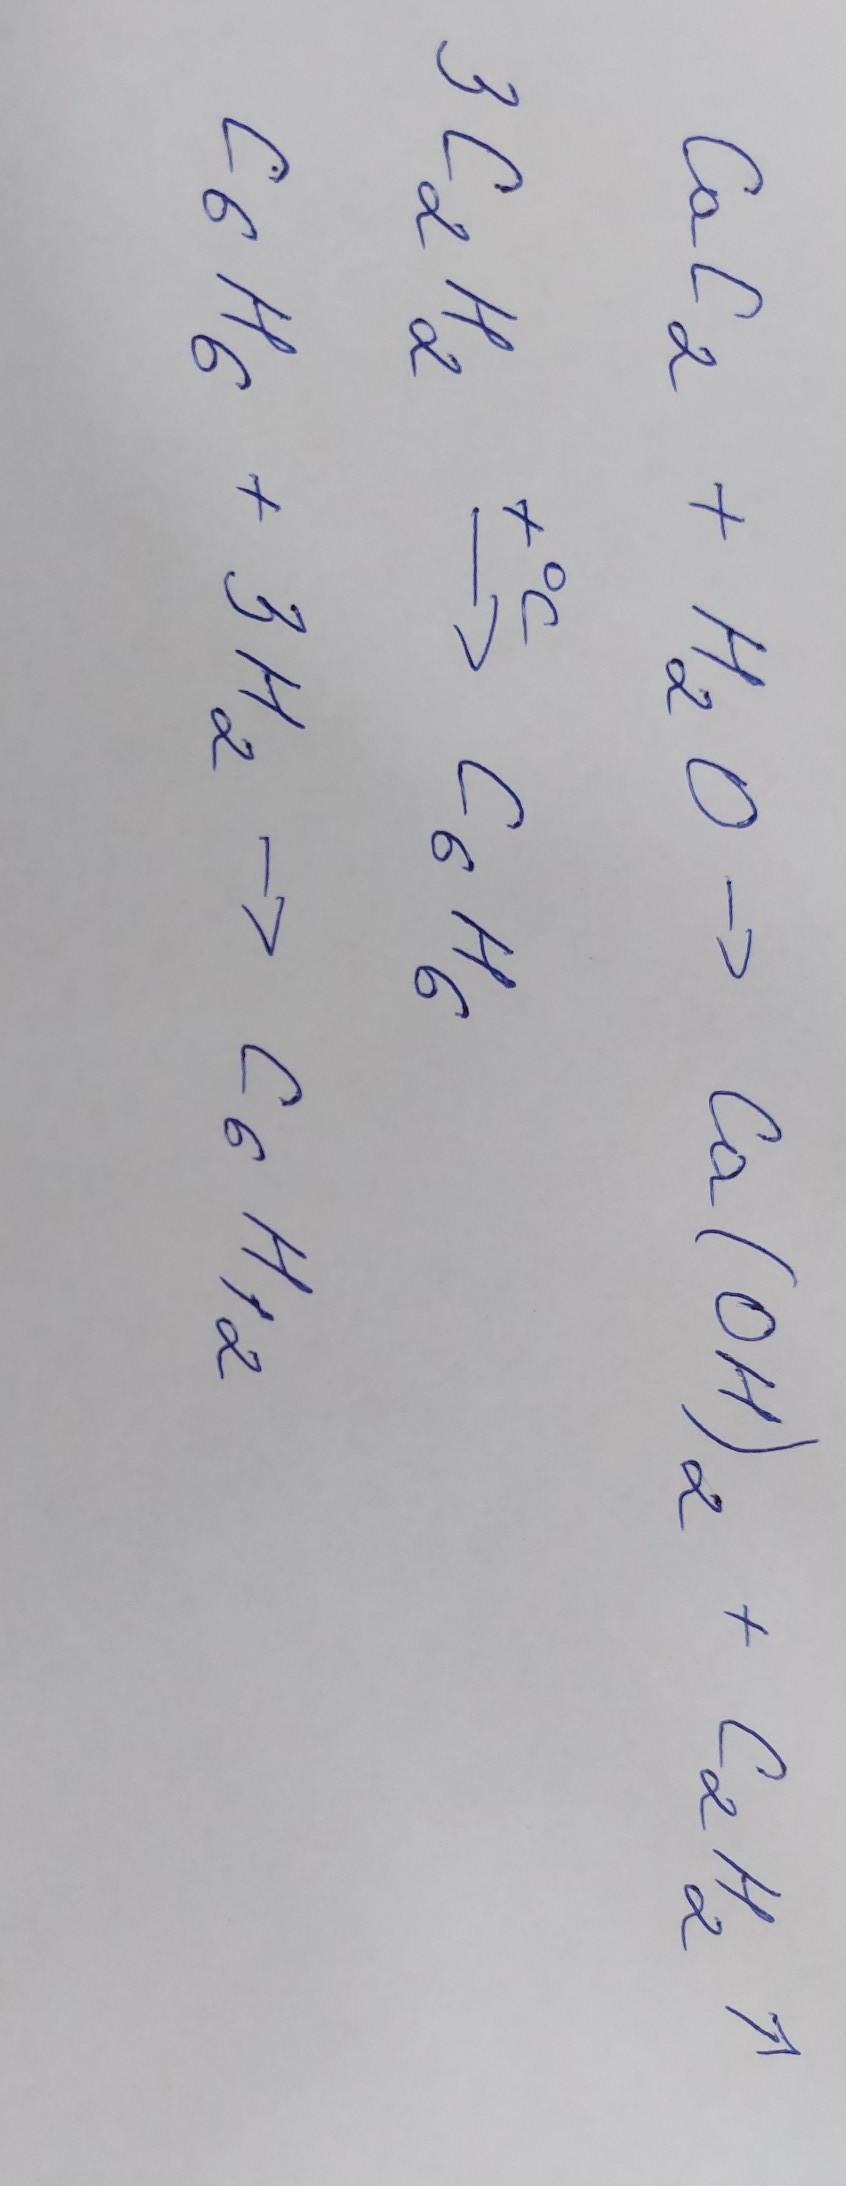 CaC₂ + H₂O → Ca(OH)₂ + C₂H₂ ↑
3C₂H₂ →^{t°C} C₆H₆
C₆H₆ + 3H₂ → C₆H₁₂